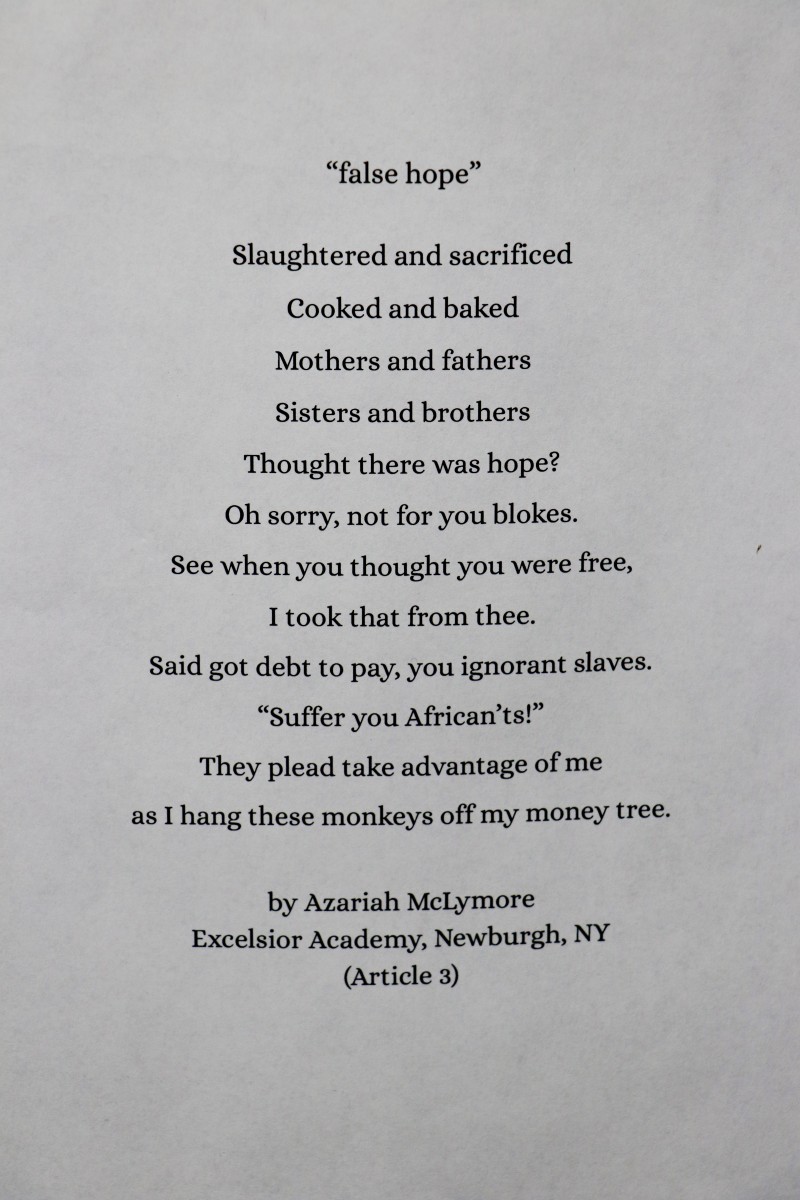 “false hope”
Slaughtered and sacrificed
Cooked and baked
Mothers and fathers
Sisters and brothers
Thought there was hope?
Oh sorry, not for you blokes.
See when you thought you were free,
I took that from thee.
Said got debt to pay, you ignorant slaves.
“Suffer you African’ts!”
They plead take advantage of me
as I hang these monkeys off my money tree.
by Azariah McLymore
Excelsior Academy, Newburgh, NY
(Article 3)